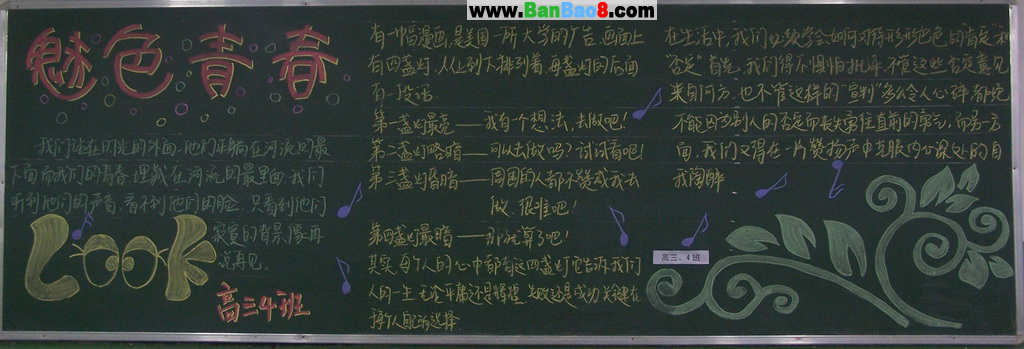 www.BanBao8.com
魅色青春
我们站在时光的
下面而我们的青春，埋藏在河流的最里面，我们
听到他们的声音，看不到他们的脸，只看到他们
寂寞的背景，像再
说再见。
LOOK
高三4班
有一幅漫画，是美国一所大学的广告，画面上
有四盏灯，从上到下排列着，每盏灯的后面
有一段话
第一盏灯最亮——我有一个想法，去做吧！
第二盏灯略暗——可以去做吗？试试看吧！
第三盏灯昏暗——周围的人都不赞成我去
做，很难吧！
第四盏灯最暗——那就算了吧！
其实，每个人的心中都有这四盏灯，它告诉我们
人的一生，无论平庸还是辉煌，失败还是成功，关键在
于个人自己的选择
在生活中，我们必须学会如何对待形形色色的肯定和
否定，首先，我们得不惧怕批评，不管这些否定意见
来自何方，也不管这样的“宣判”多么令人心碎，都绝
不能因为别人的否定而丧失掉往直前的勇气，而另一方
面，我们又得在一片赞扬声中克服内心深处的自
我陶醉
高三、4班